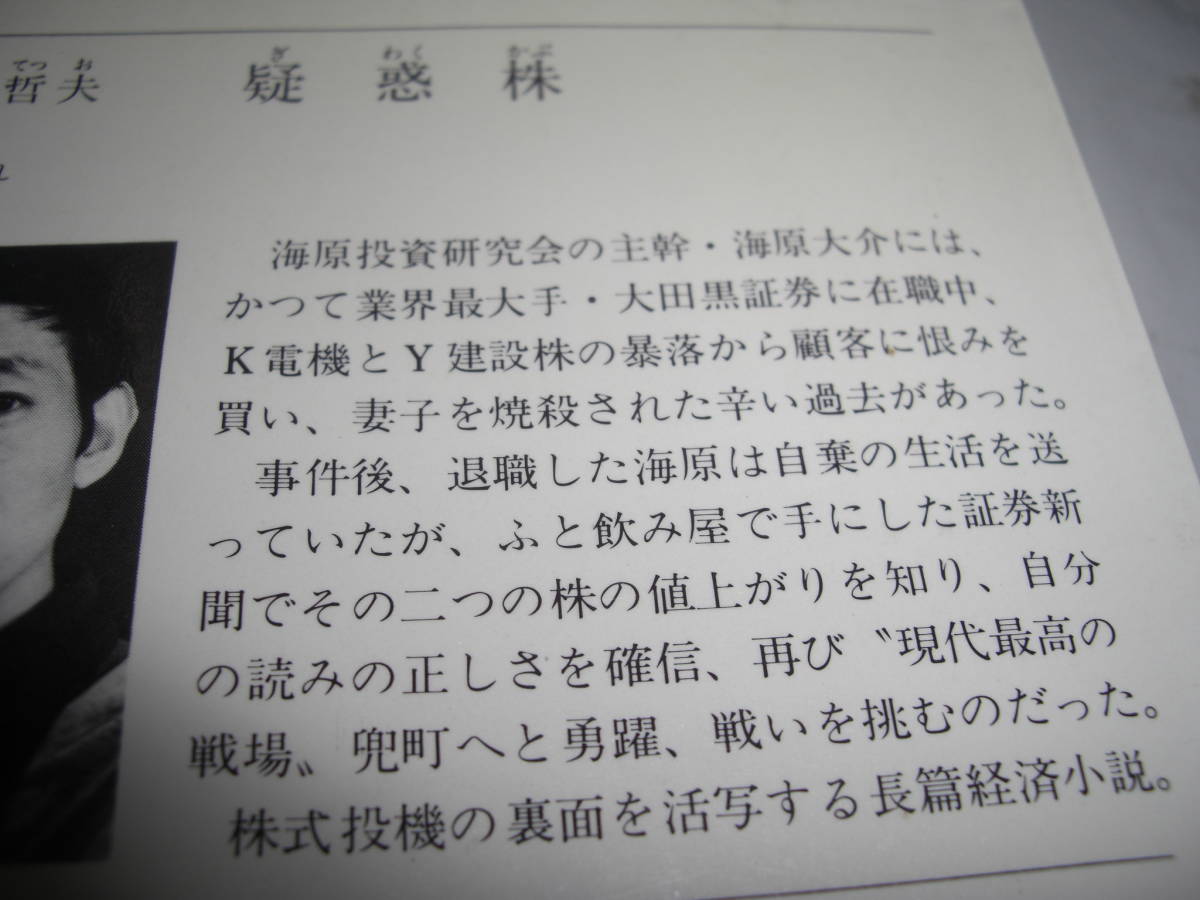 てつ お
哲夫
ぎ わく かぶ
疑惑株
海原投資研究会の主幹・海原大介には、
かつて業界最大手・大田黒証券に在職中、
K電機とY建設株の暴落から顧客に恨みを
買い、妻子を焼殺された辛い過去があった。
事件後、退職した海原は自棄の生活を送
っていたが、ふと飲み屋で手にした証券新
聞でその二つの株の値上がりを知り、自分
の読みの正しさを確信、再び〝現代最高の
戦場〟兜町へと勇躍、戦いを挑むのだった。
株式投機の裏面を活写する長篇経済小説。